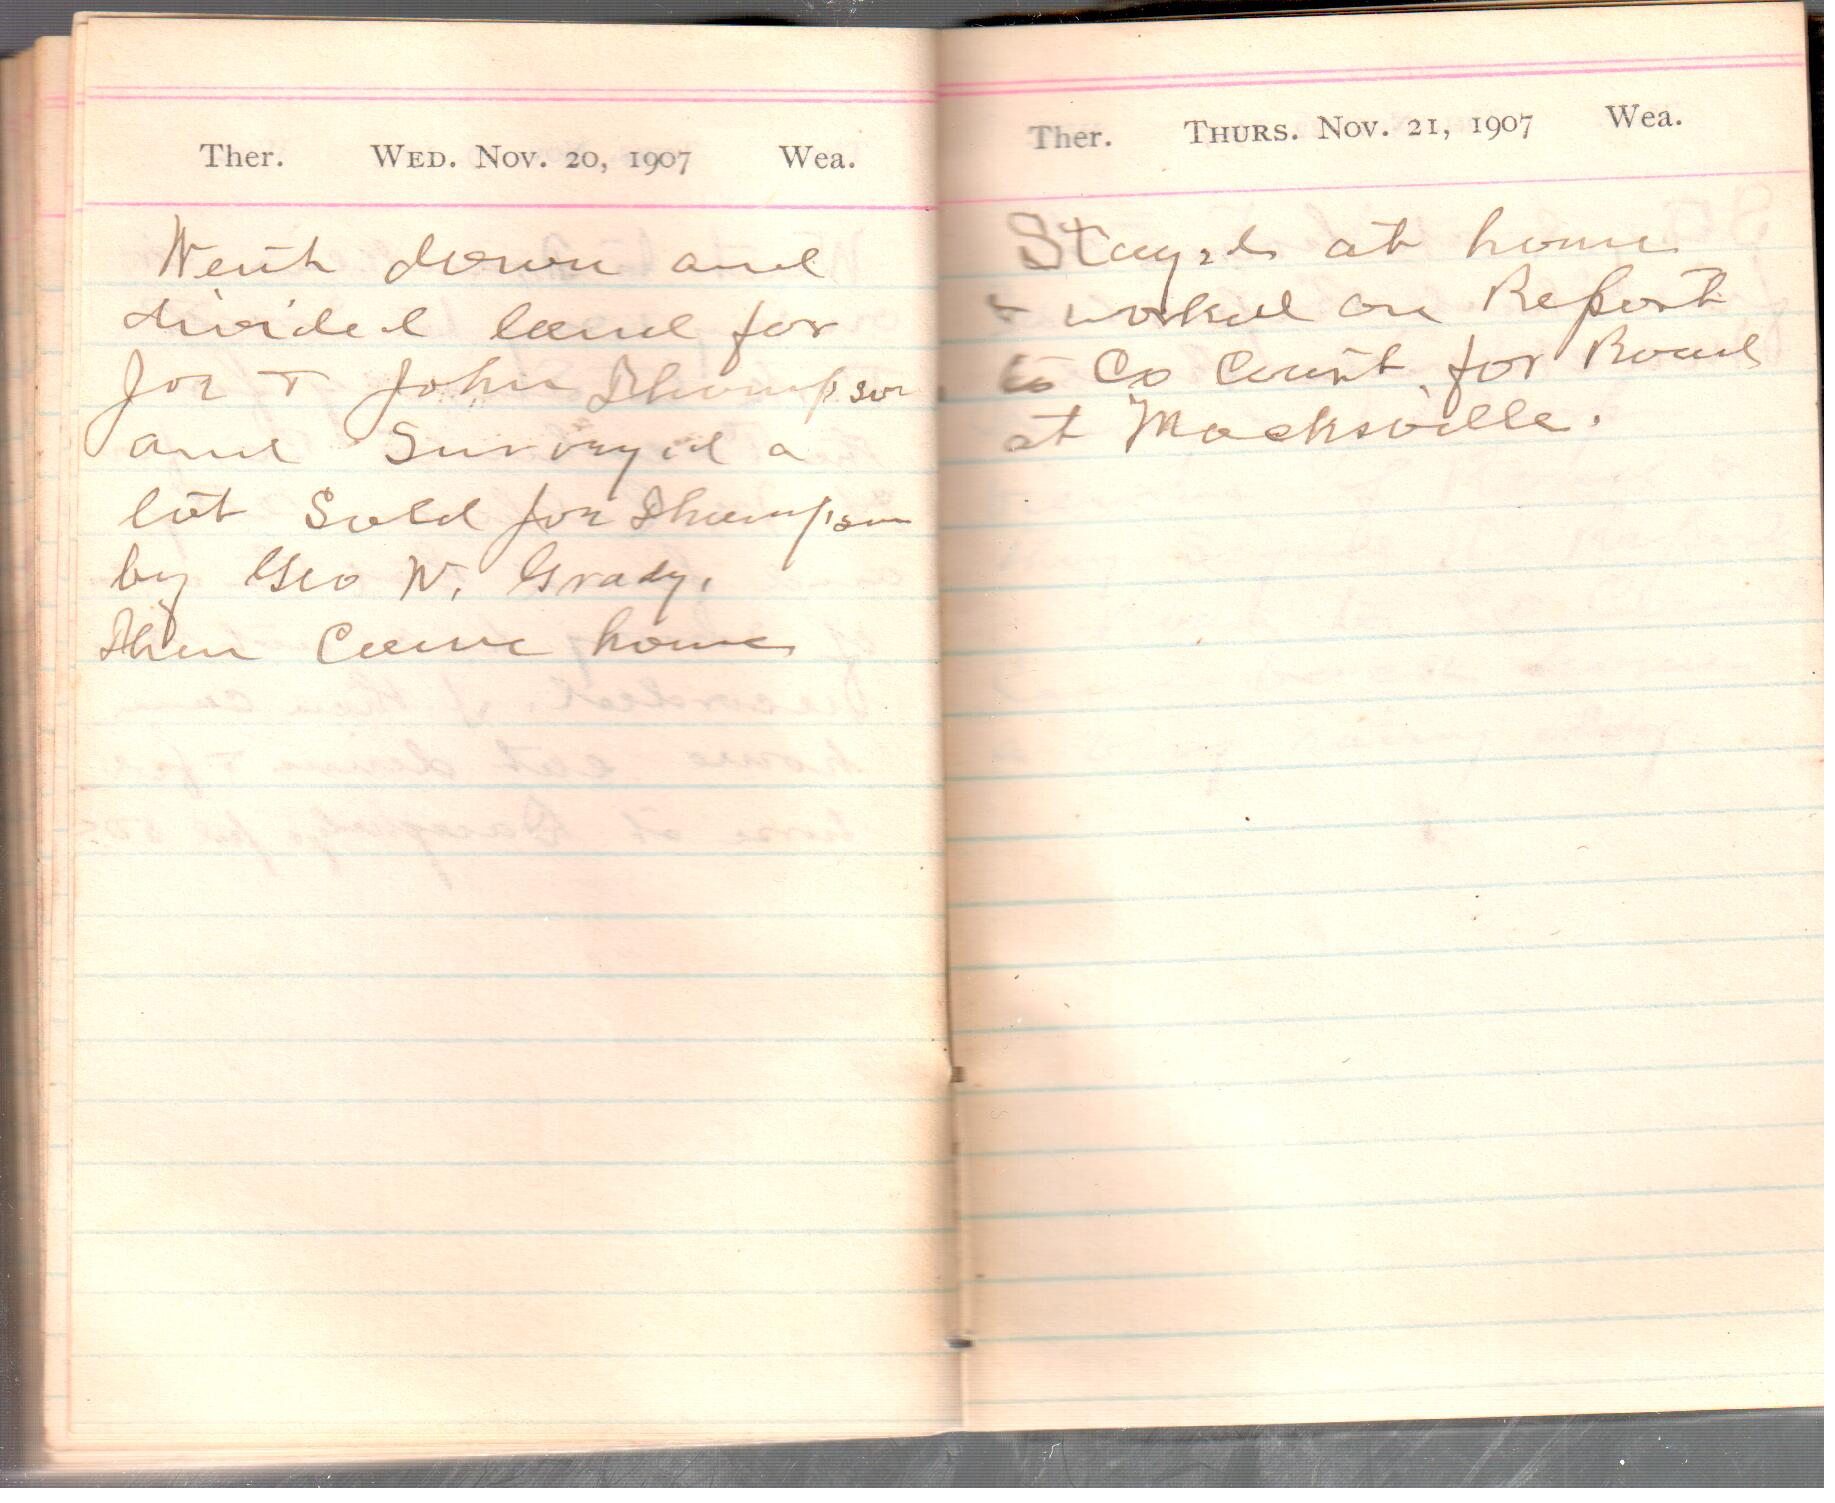 Ther. WED. NOV. 20, 1907 Wea.
Went down and
divided land for
Joe & John Thompson
and Surveyed a
lot Sold Joe Thompson
by Geo W. Grady.
Then Came home
Ther. THURS. NOV. 21, 1907 Wea.
Stayed at home
& worked on Report
to Co Court for Road
at Macksville.